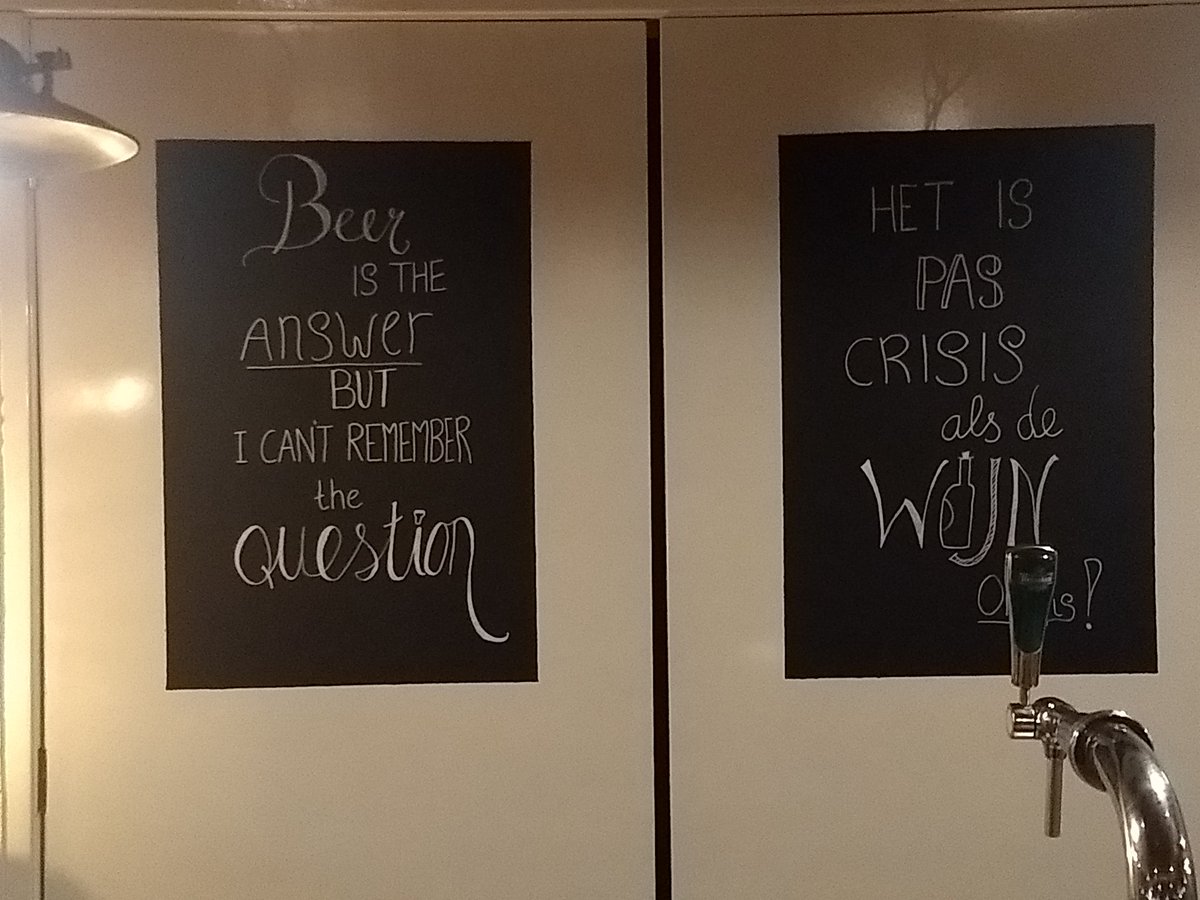 Beer
IS THE
answer
BUT
I CAN'T REMEMBER
the
question
HET IS
PAS
CRISIS
als de
WIJN
is!